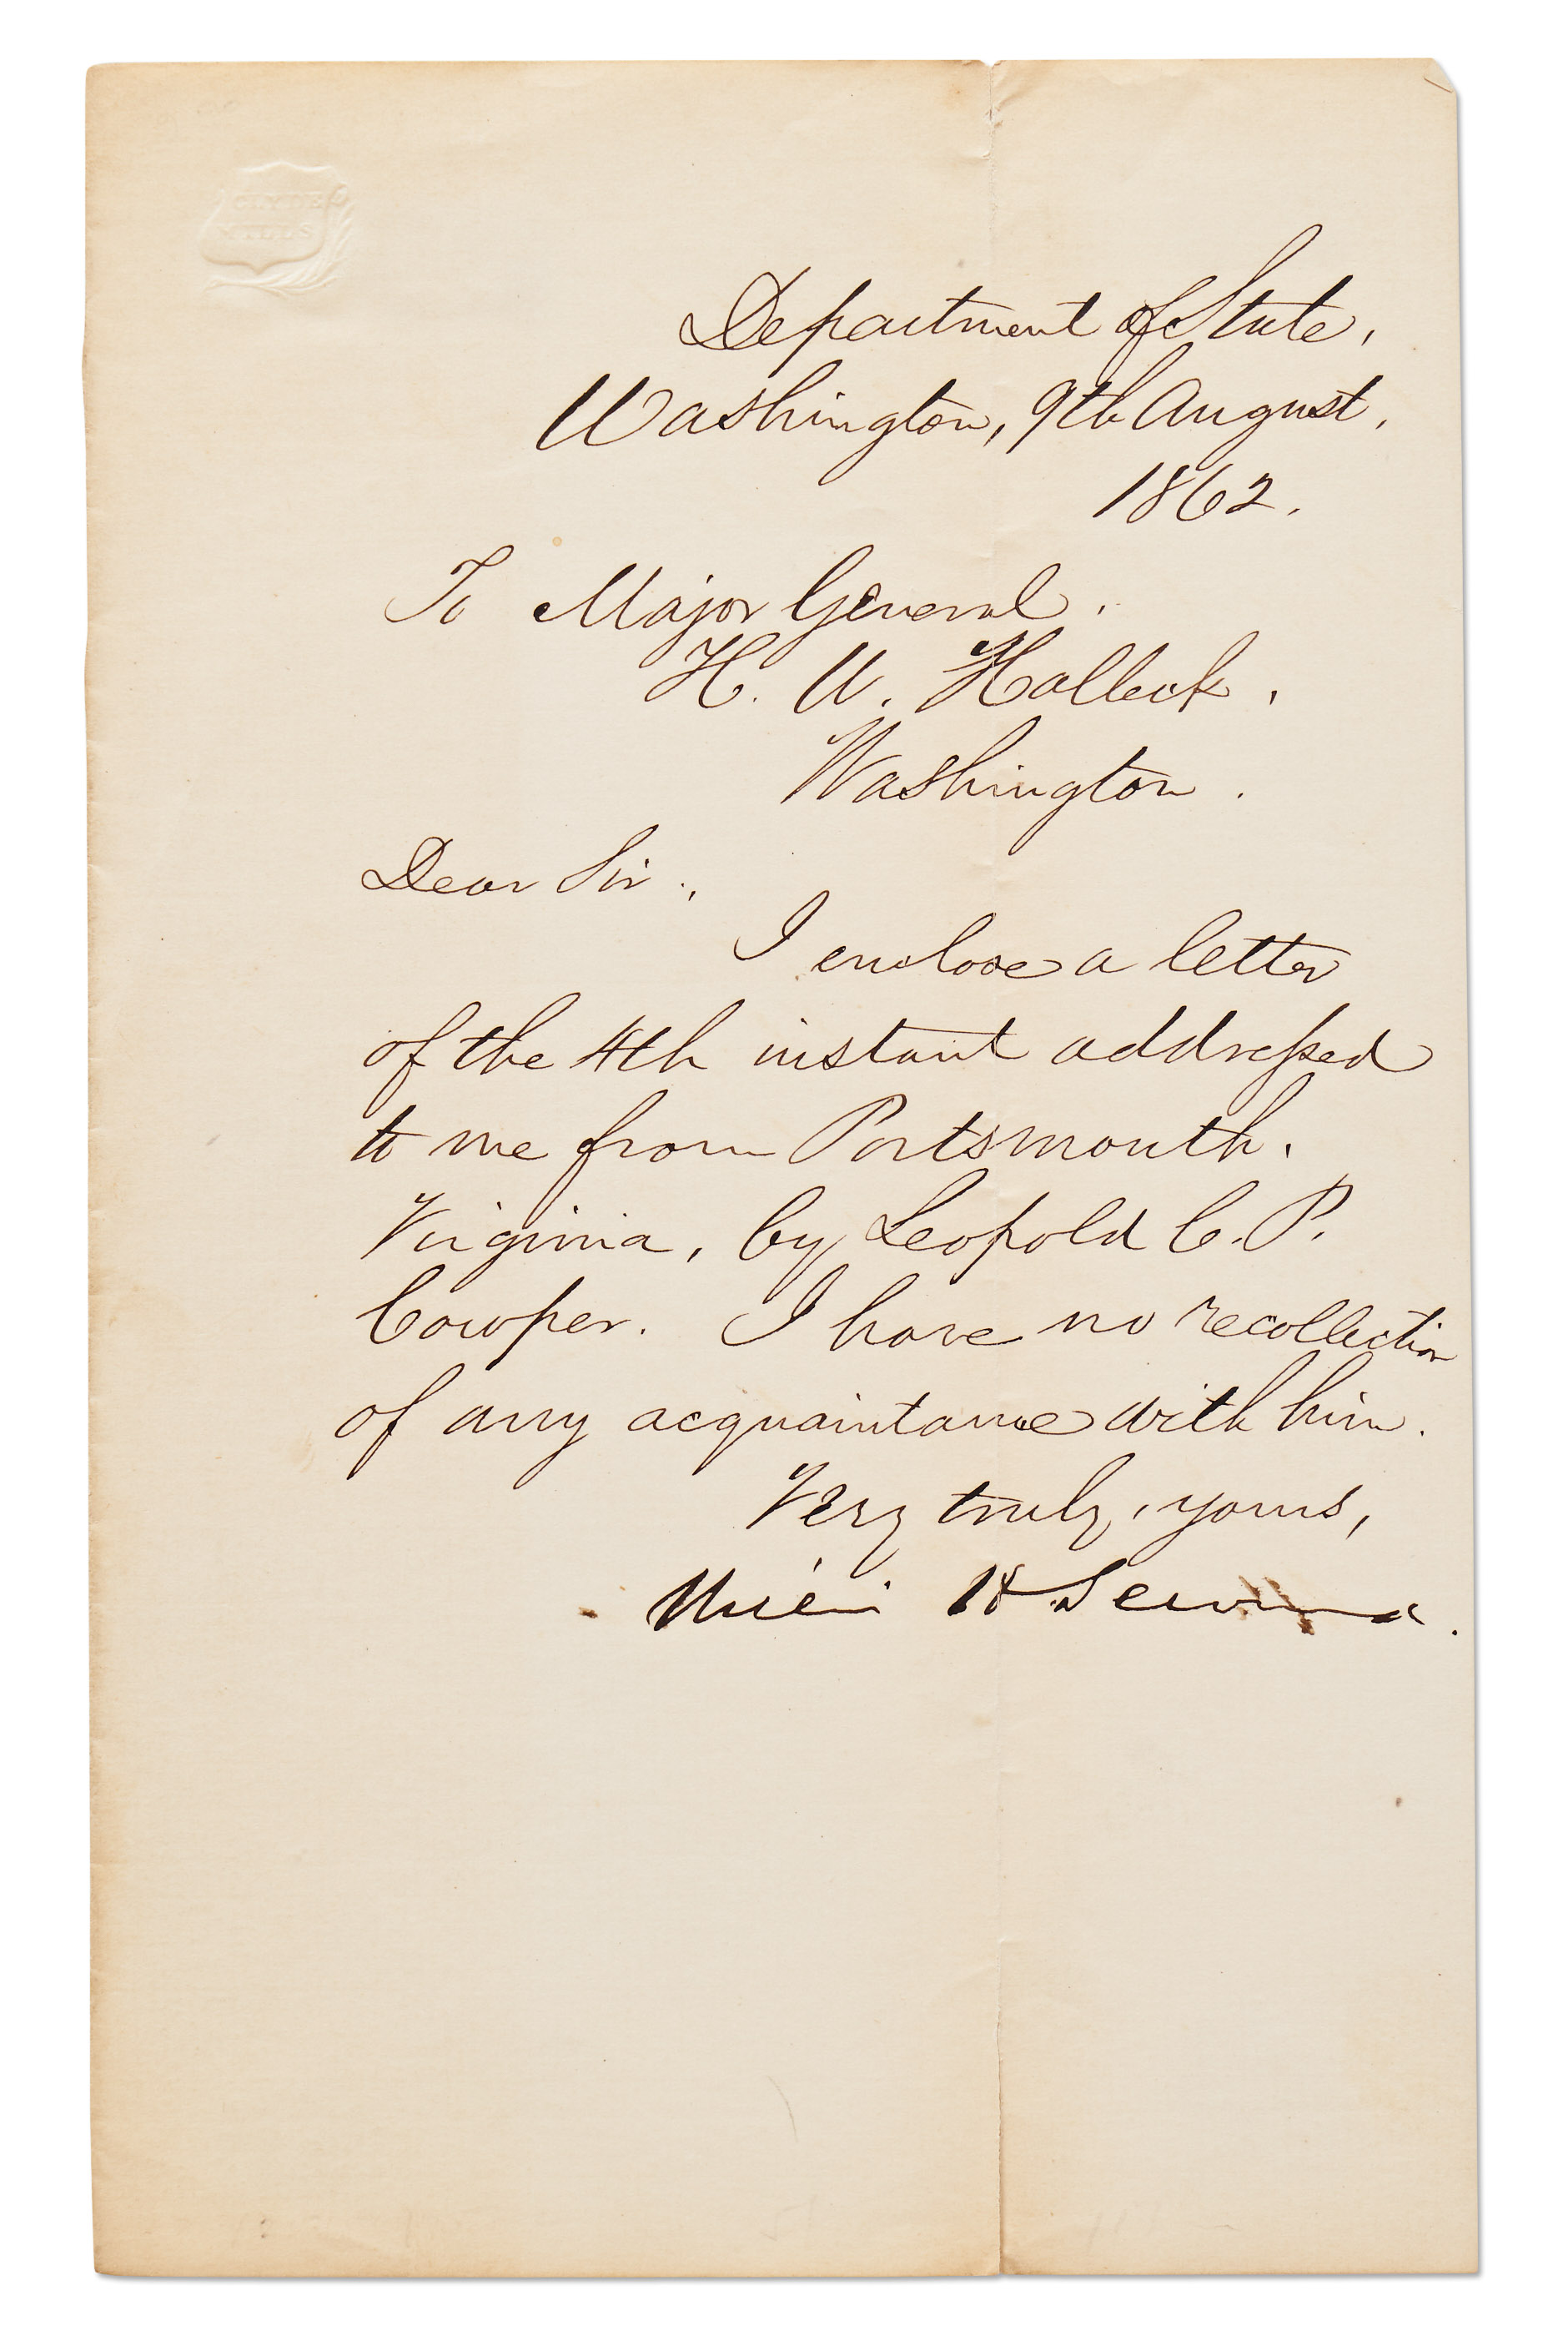 CLYDE
MILLS
Department of State,
Washington, 9th August,
1862.
To Major General.
H. W. Halleck,
Washington.
Dear Sir.,
I enclose a letter
of the 4th instant addressed
to me from Portsmouth.
Virginia, by Leopold C. P.
Cowper. I have no recollection
of any acquaintance with him.
Very truly, yours,
William H Seward.